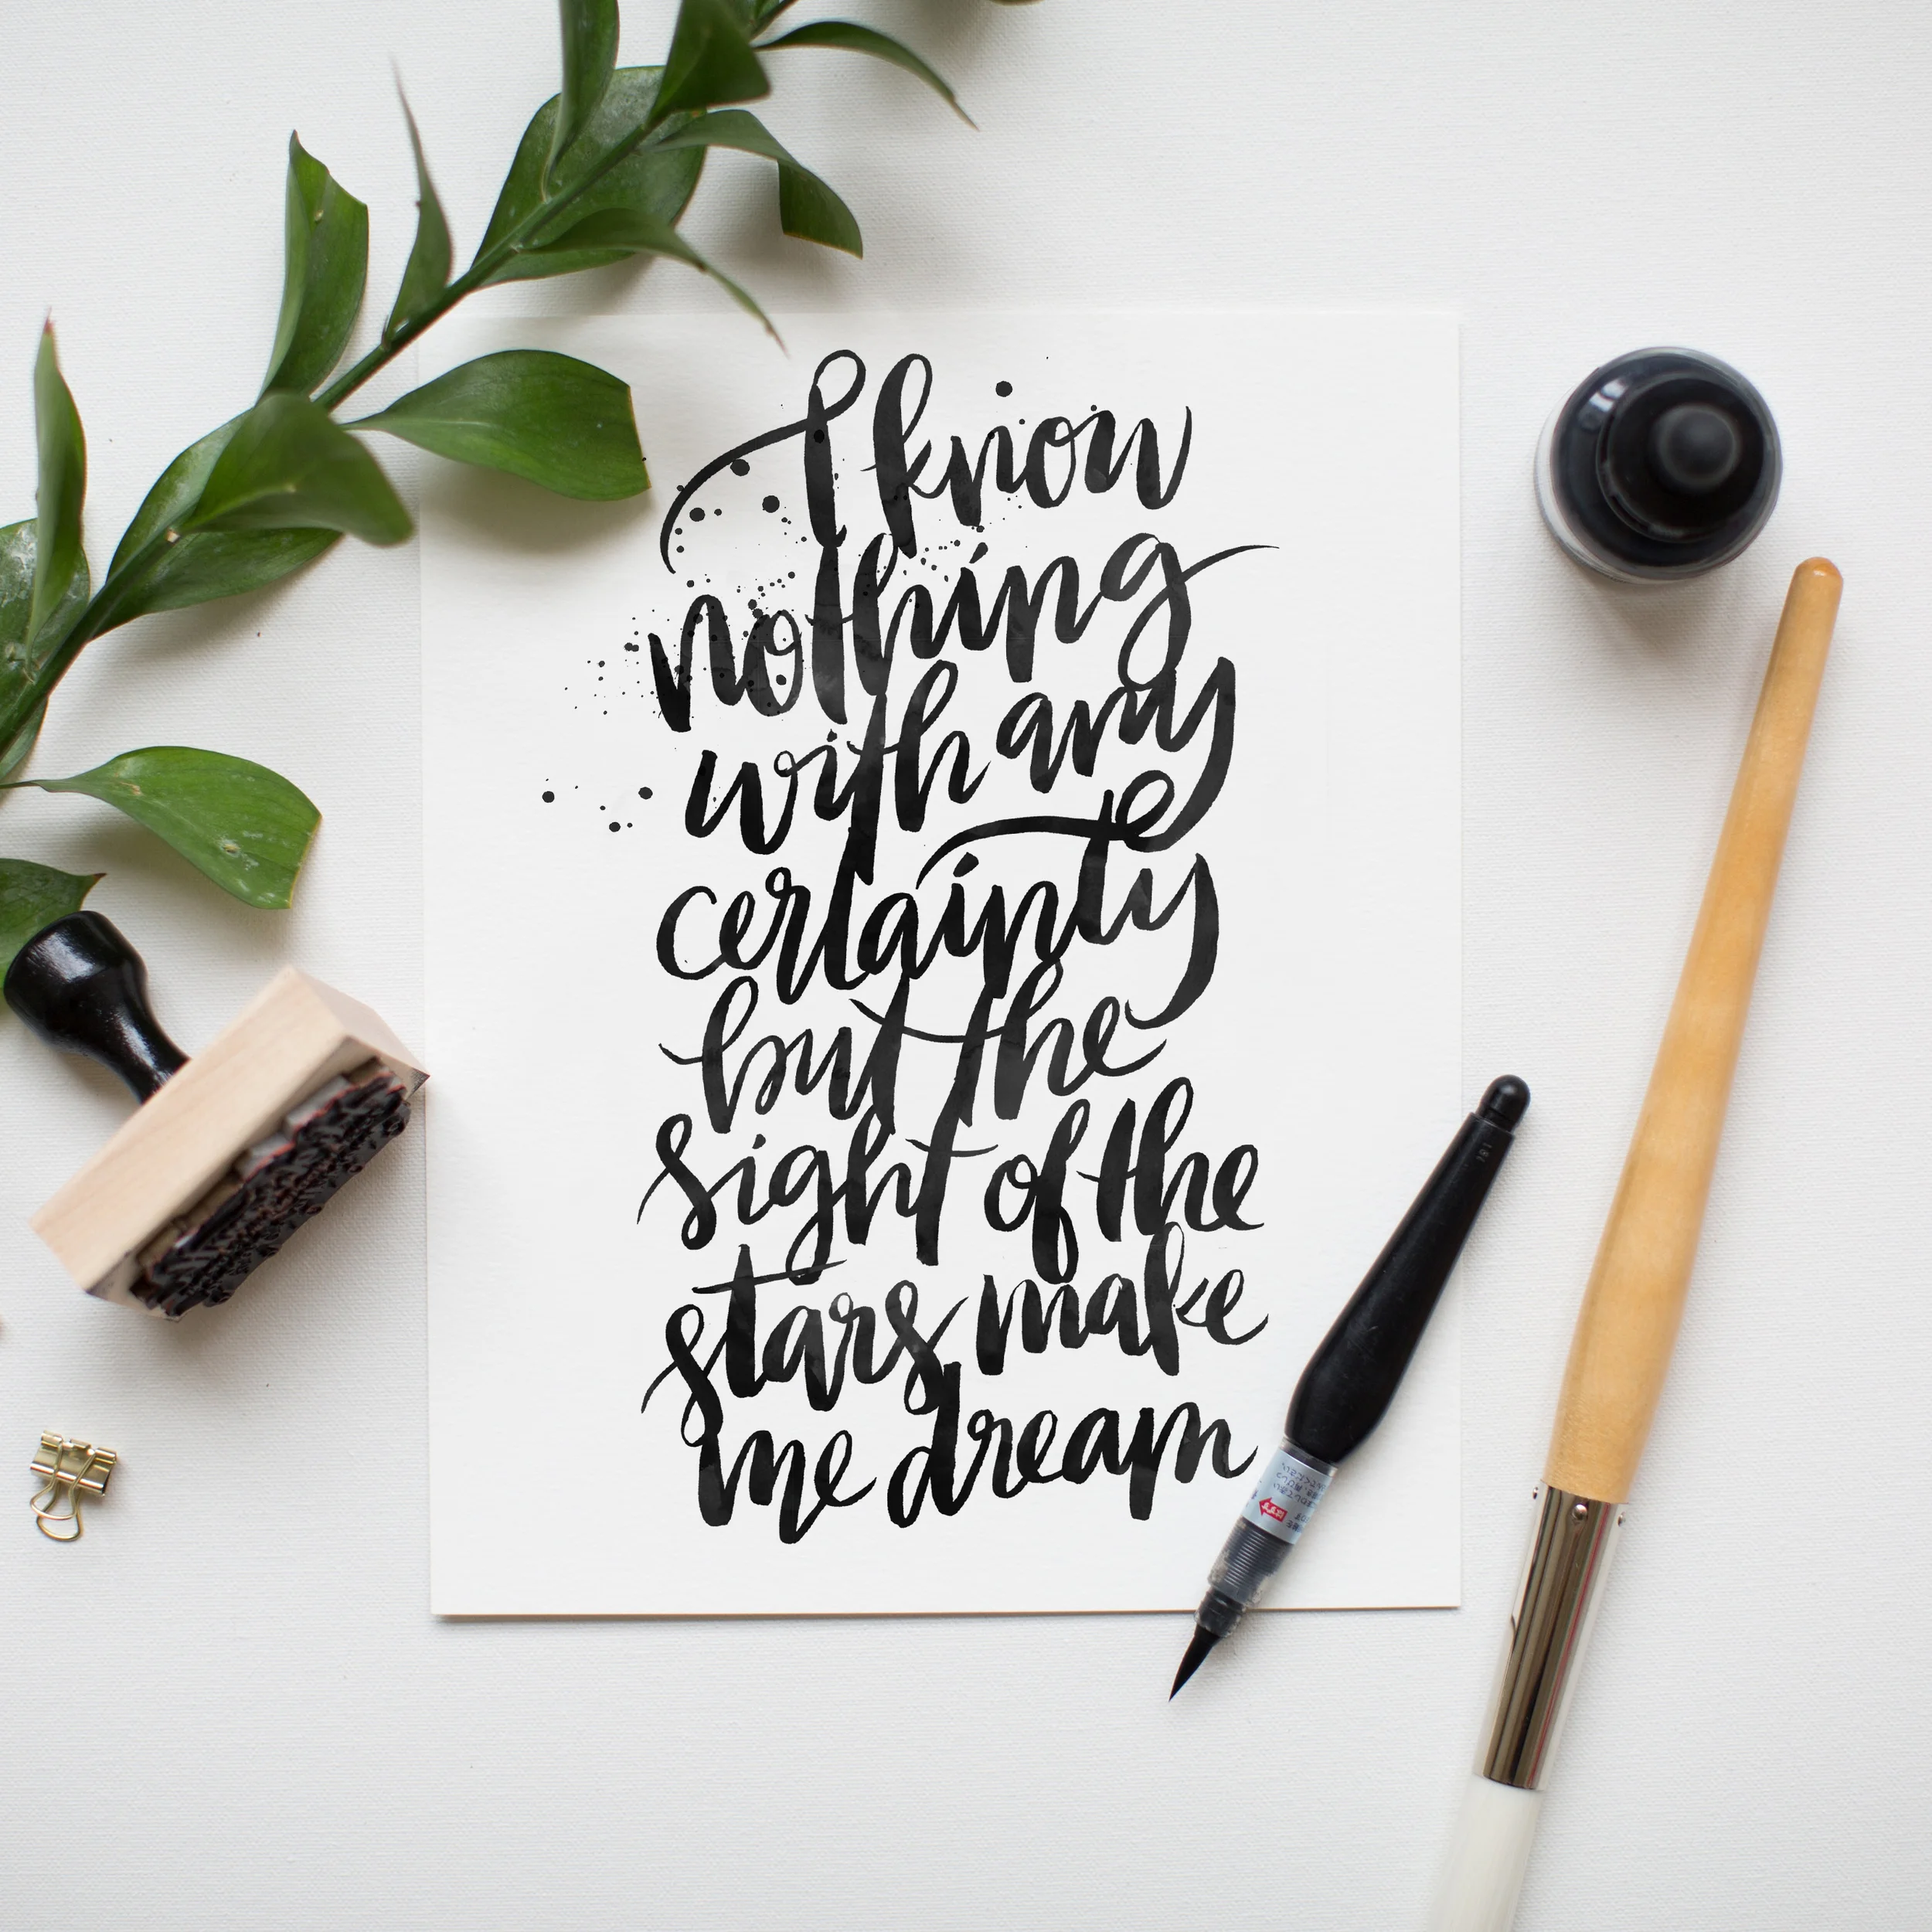 I know
nothing
with any
certainty
but the
sight of the
stars make
me dream